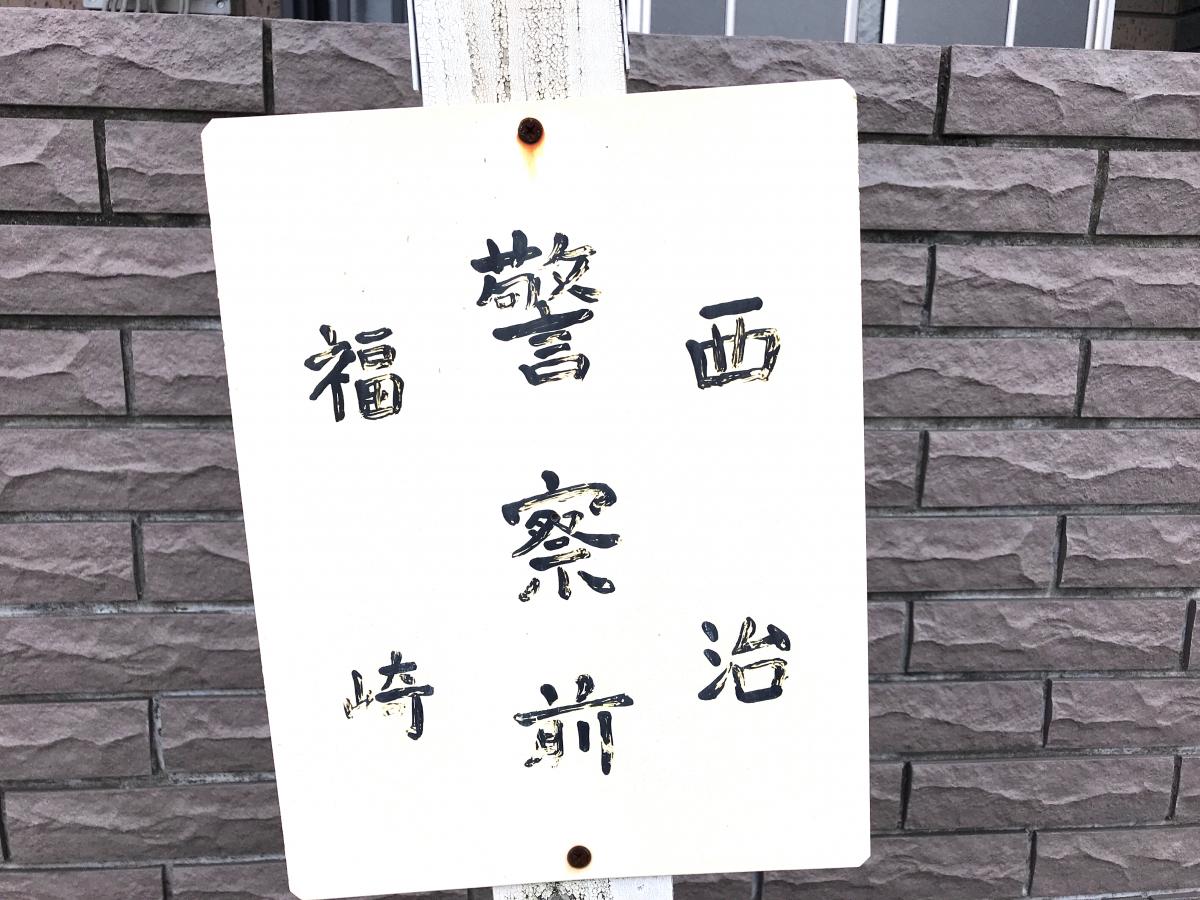 西治
警察前
福崎